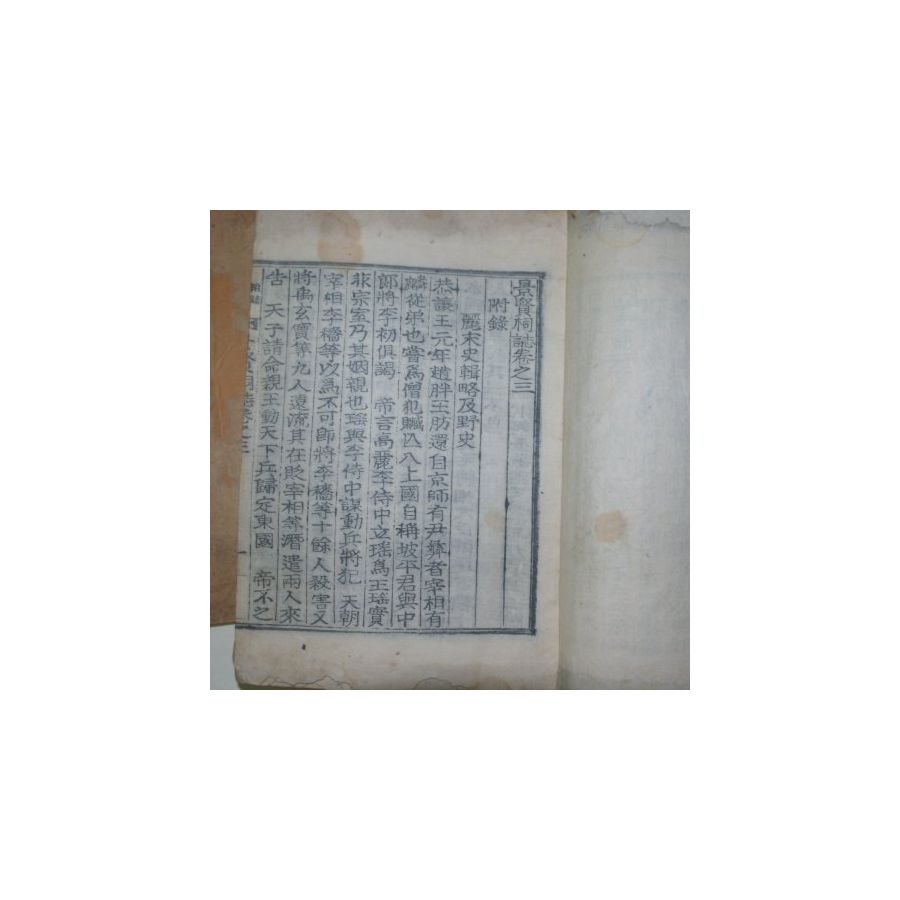 景賢祠誌卷之三
附錄
麗末史輯略及野史
恭讓王元年趙胖王肪還自京師有尹彜者宰相有
麟從弟也嘗爲僧犯贓囚入上國自稱坡平君與中
郞將李初俱謁 帝言高麗李侍中立瑤爲王瑤實
非宗室乃其姻親也瑤與李侍中謀動兵將犯 天朝
宰相李穡等以爲不可卽將李穡等十餘人殺害又
將禹玄寶等九人遠流其在貶宰相等潛遣兩人來
告 天子請命親王動天下兵歸定東國 帝不之